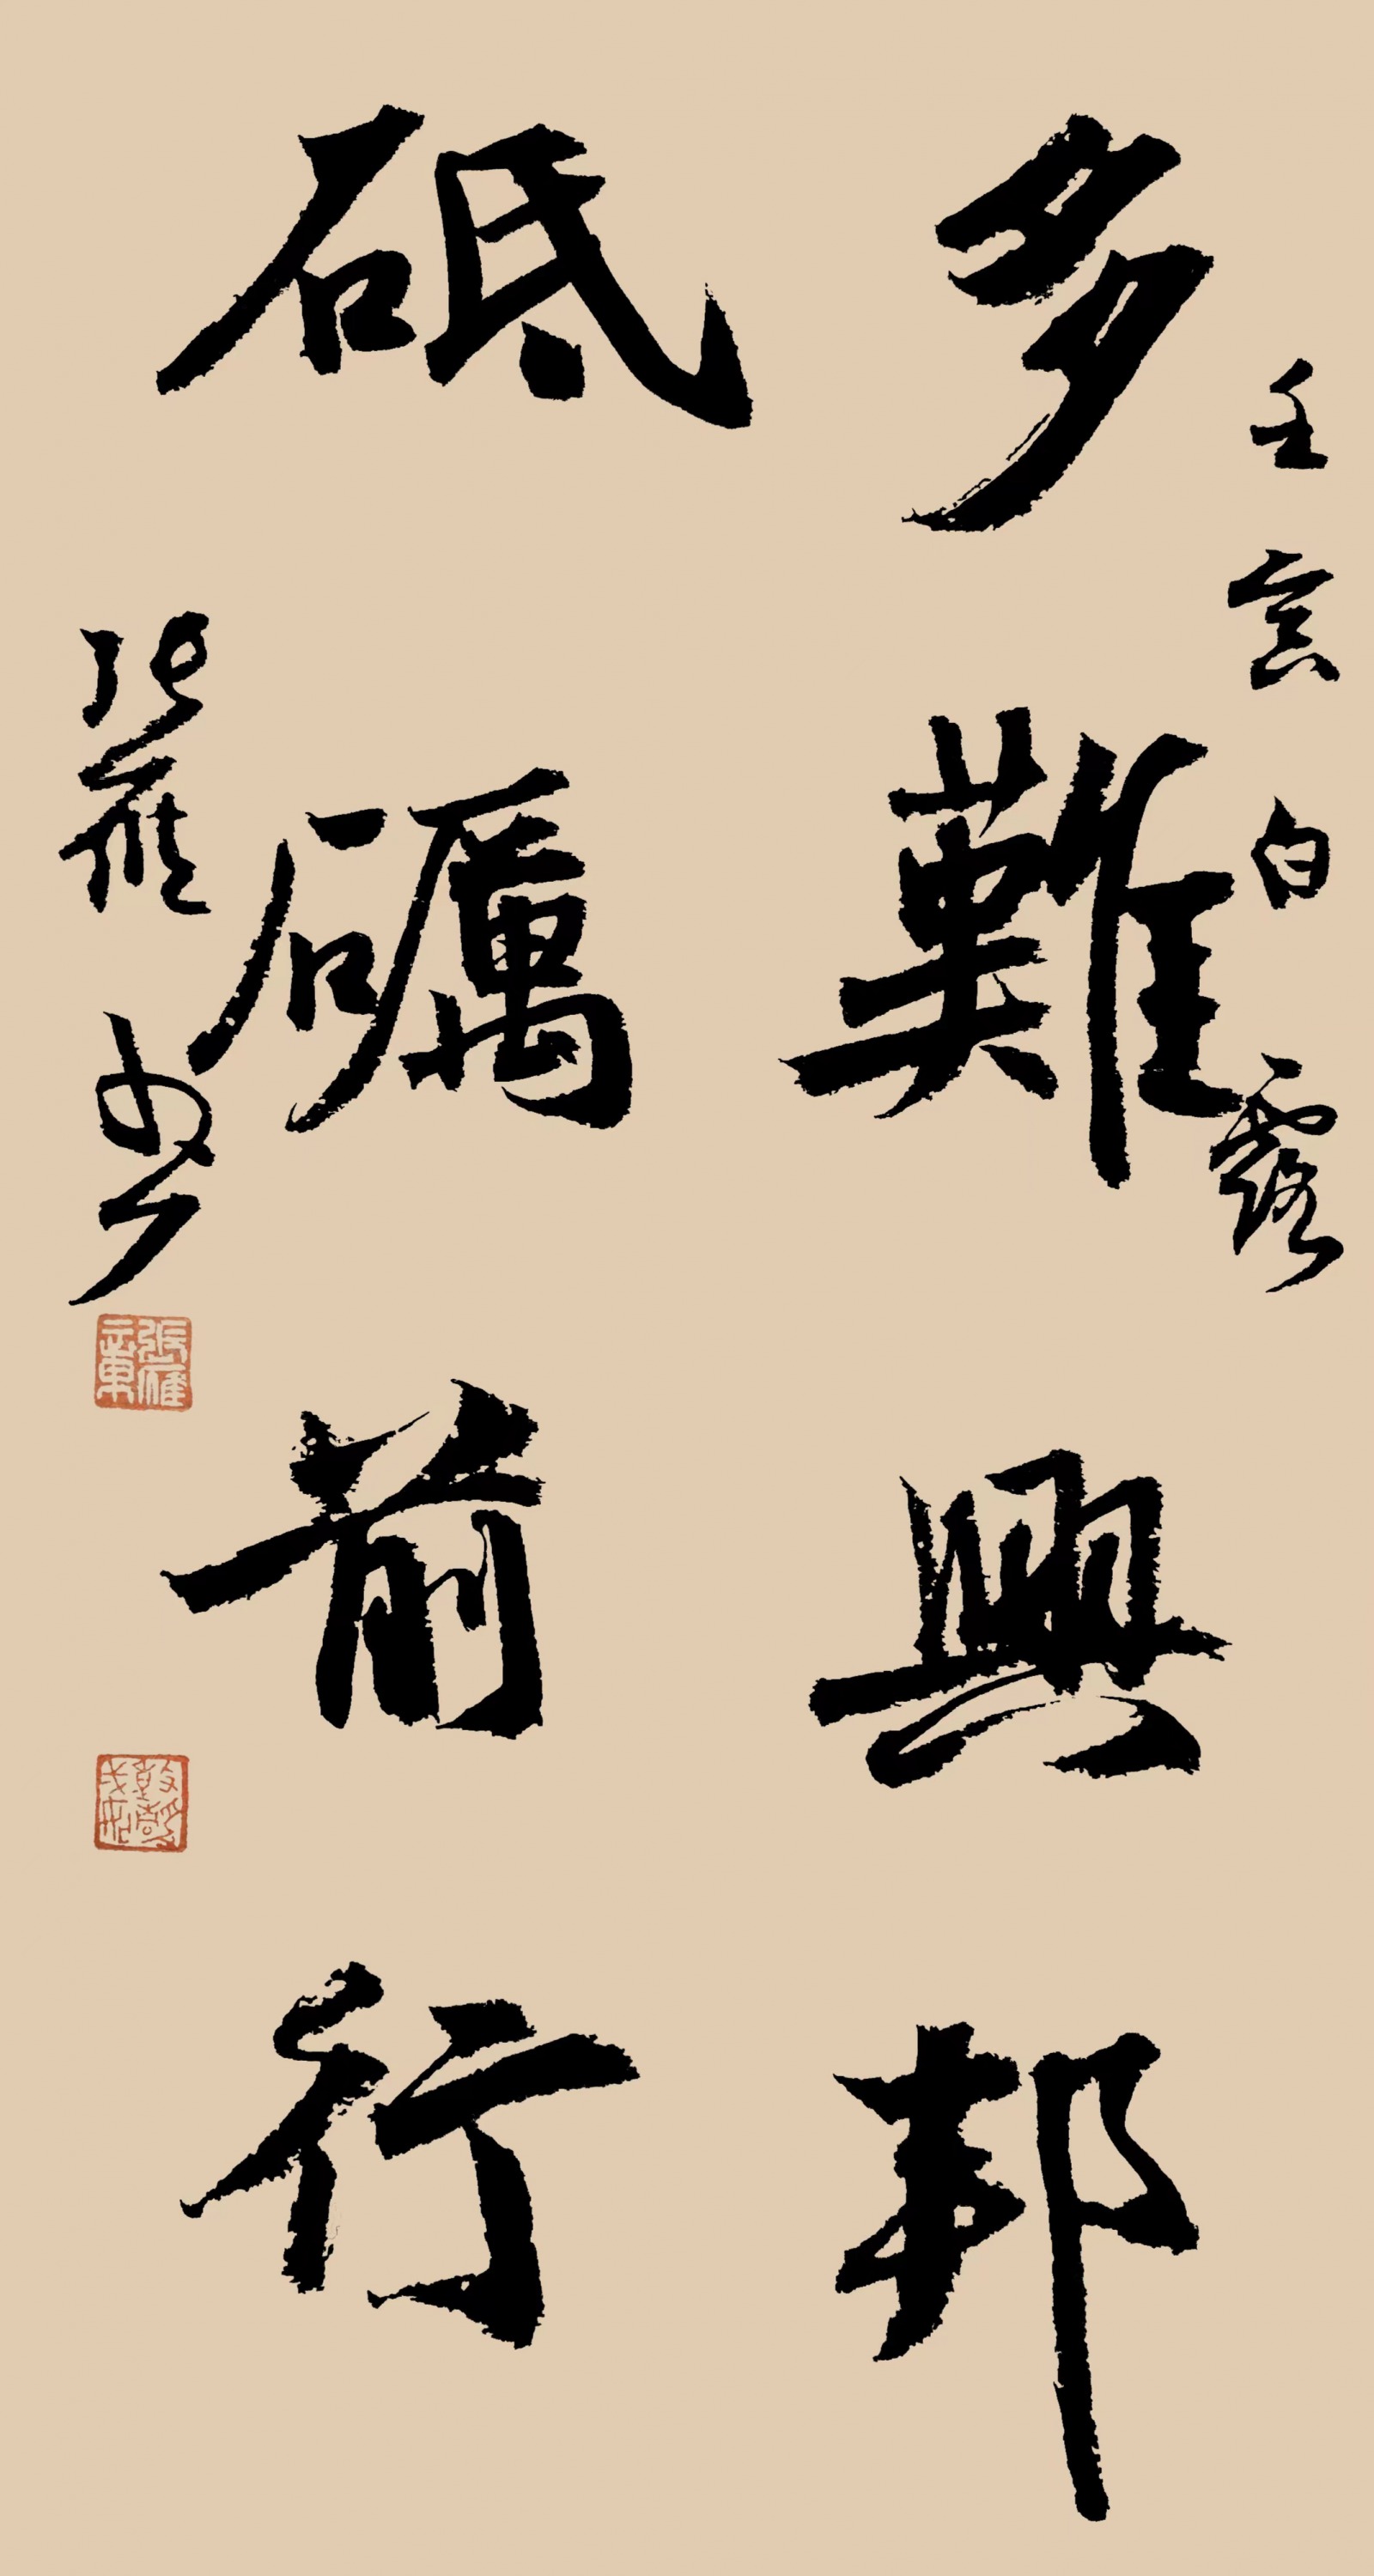 壬寅白露
多難興邦
砥礪前行
張雁書
張雁之章